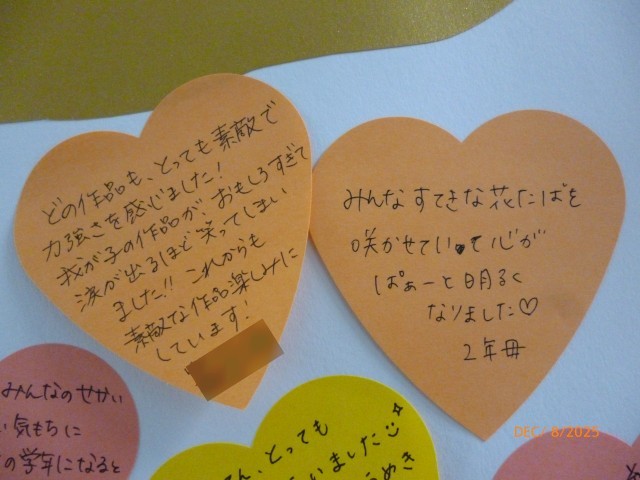 どの作品も、とっても素敵で
力強さを感じました!
我が子の作品が、おもしろすぎて
涙が出るほど笑ってしまい
ました!! これからも
素敵な作品楽しみに
しています!
みんなすてきな花たばを
咲かせていて心が
ぱぁーと明るく
なりました♡
2年毋
みんなのせかい
い気もちに
の学年になると
ん、とっても
いました
めき
DEC/ 8/2025